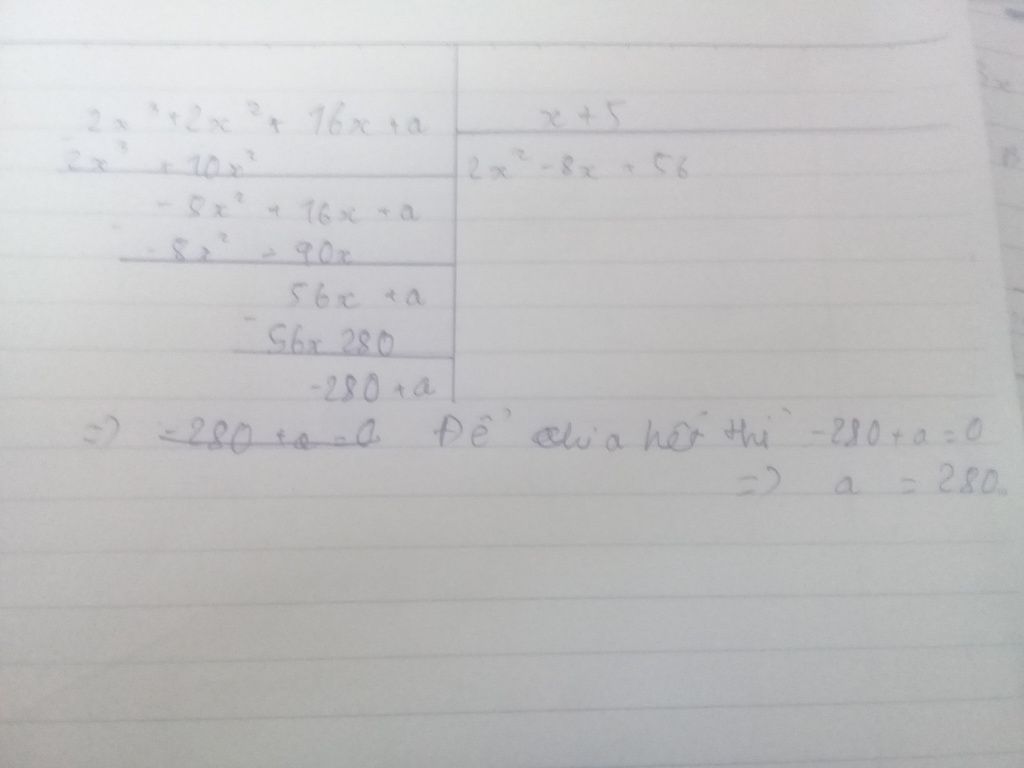 2x³ + 2x² + 16x + a x + 5
2x³ + 10x² 2x² - 8x + 56
- 8x² + 16x + a
- 8x² - 40x
56x + a
56x 280
-280 + a
=> -280 + a = 0 Để chia hết thì -280 + a = 0
=> a = 280